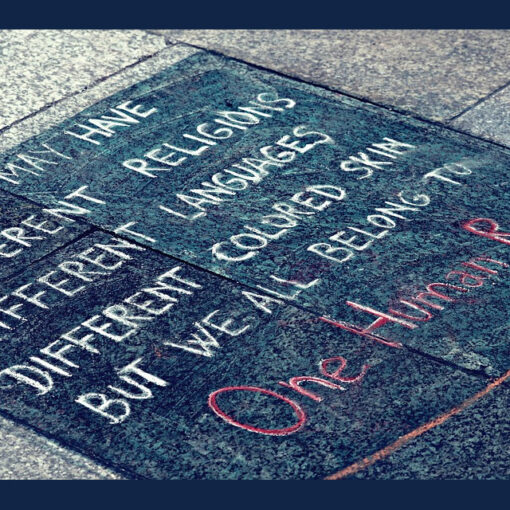 MAY HAVE
ERENT RELIGIONS
IFFERENT LANGUAGES
DIFFERENT COLORED SKIN
BUT WE ALL BELONG TO
One Human R